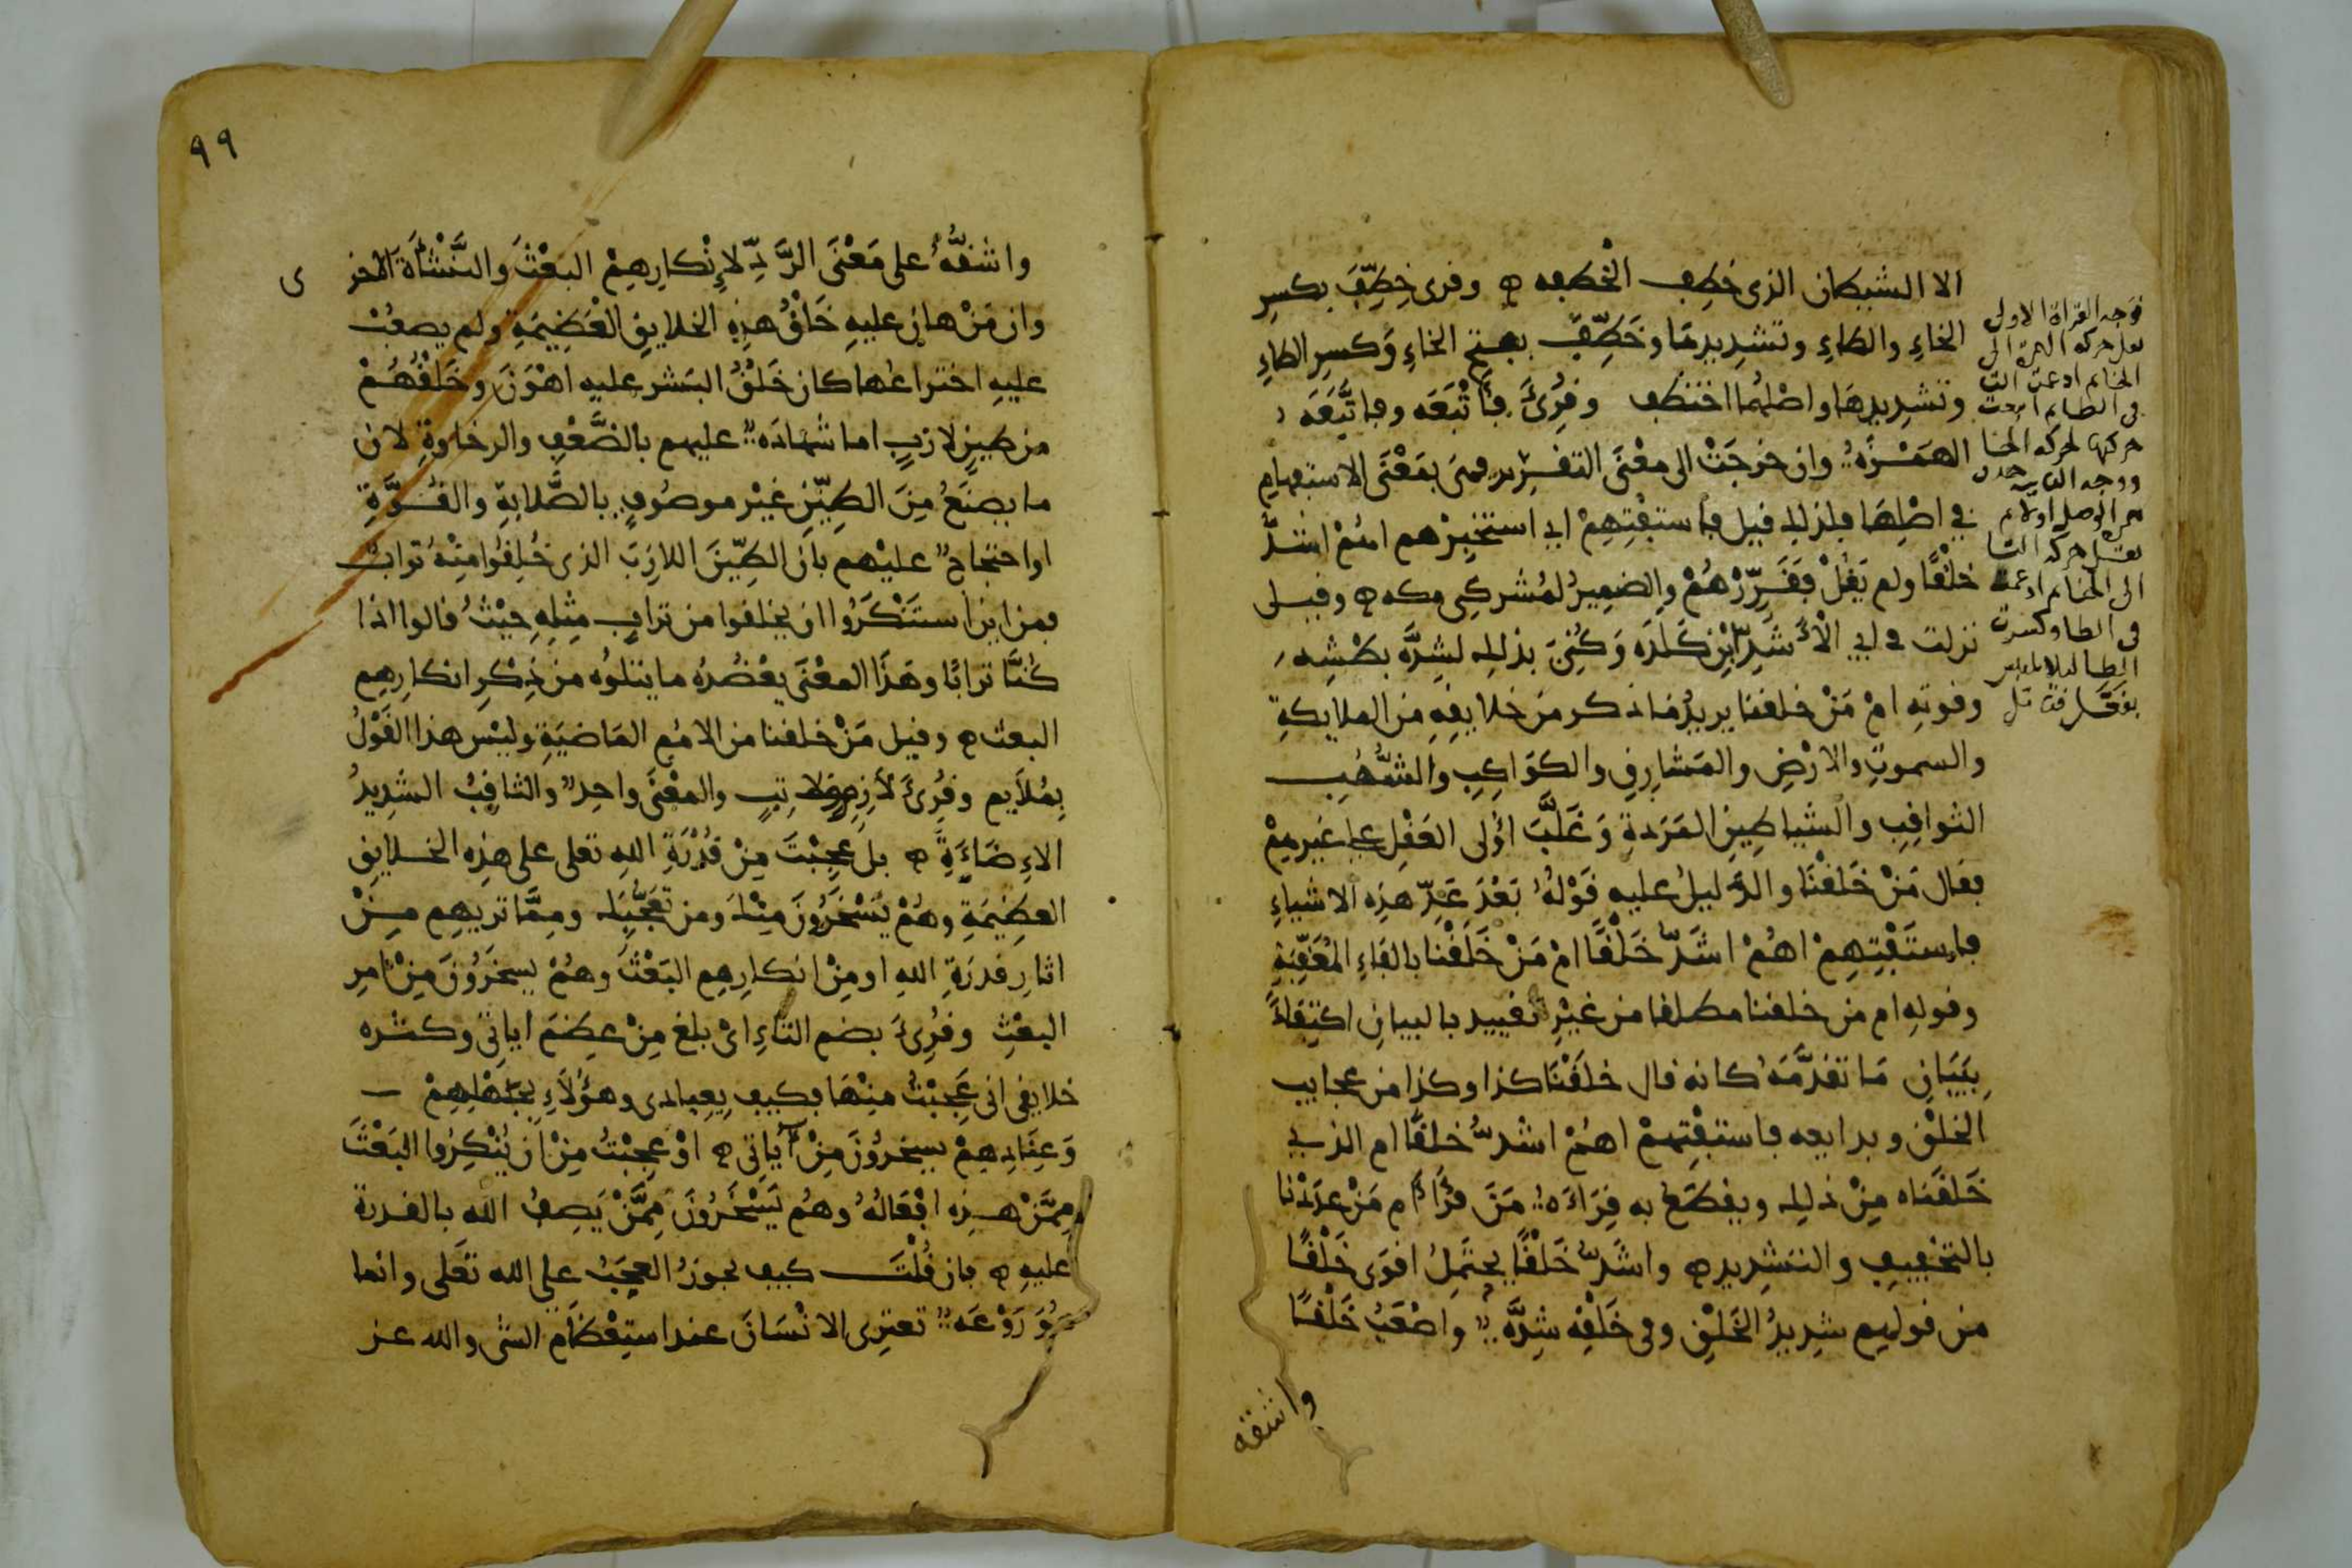 الا الشيطان الذى خطِف الخطفه ه وقرى خِطِّفَ بكسرِ
الخاءِ والطاءِ وتشديدِهَا وخَطِّفَ بفتحِ الخاءِ وَكسرِ الطاءِ
وتشدِيدِهَا واصْلُهُما اختطف وقُرِئَ فأَتْبَعَه وفاتَّبَعَه
الهَمْزَةُ وان خرجَتْ الى معْنَى التقرير فهىَ بمَعْنَى الاستفهامِ
فى اصْلِهَا فلذلك قيل فاستفْتِهِمْ اى استخبِرْهم اهُمْ اشدُّ
خلْقًا ولم يَقُلْ فَقَرِّرْهُمْ والضميرُ لمُشركى مكه ه وقيل
نزلت فى ابى الأَشَدِّ ابْنِ كَلَدَه وَكُنِىَ بذلك لشِدَّه بطْشِه
وقوتِهِ امْ مَنْ خلقنا يريدُ ما ذكر مِن خلايقِهِ مِن الملايكةِ
والسموتِ والارْضِ والمَشارِقِ والكَوَاكِبِ والشُّهُبِ
الثواقِبِ والشياطِينِ المَرَدةِ وَغلَّبَ اُولى العَقْلِ على غيرِهِمْ
فقال مَنْ خَلقْنَا والدَّليلُ عليهِ قَوْلُهُ بَعْدَ عَدِّ هذِه الاشياءِ
فاستَفْتِهِمْ اهُمْ اشَدُّ خَلْقًا امْ مَنْ خَلَقْنَا بالفَاءِ المُعَقِّبةِ
وقولِهِ ام من خلقنا مطلقا من غيْرِ تقييد بالبيانِ اكتِفَاءً
بِبَيَانِ مَا تقدَّمَهُ كانه قال خلَقْنَا كذا وكذا من عجايب
الخلْقِ وبدايعه فاستفْتِهِمْ اهُمْ اشدُّ خلقًا ام الذى
خَلقْنَاه مِنْ ذلِك ويقطَعُ به قِرَاءَهُ مَنْ قرَأَ أم مَنْ عدَدْنا
بالتخْفِيفِ والتشديدِ ه واشَدُّ خَلْقًا يحتَمِلُ اقوَى خَلْقًا
مِن قولِهِم شدِيدُ الخَلْقِ وفى خَلْقِه شِدَّهٌ واصْعَبُ خَلْقًا
واشقه
فوجه القراة الاولى
الى
الخا ثم ادغمت التا
فى الطا
حركتها لحركه الخا
الوصل
حركه التا
الى الخا ثم ادغمه
فى الطا وكسرت
الطا
٩٩
واشقُّهُ على مَعْنَى الرَّدِّ لإِنْكارِهِمْ البَعْثَ والنَّشْأَةَ الاخر ى
وان مَنْ هان عليهِ خَلْقُ هذِهِ الخلايقِ العَظِيمَةِ ولم يصعُبْ
عليهِ اختراعُها كان خَلْقُ البَشر عليه اهْوَنَ وخَلْقُهُمْ
من طينٍ لازبٍ اما شهادَهٌ عليهم بالضَّعْفِ والرخاوةِ لان
ما يصنَعُ مِنَ الطِينِ غيْر موصُوفٍ بالصَّلابةِ والقُوَّةِ
او احتجاجٌ عليْهم بأن الطِّينَ اللازِبَ الذى خُلِقُوا مِنْهُ تراب
فمن اين استَنْكَرُوا ان يخلقوا من ترابٍ مِثلِهِ حيْثُ قالوا اذا
كُنَّا ترابًا وهَذَا المعْنَى يعْضُدُهُ ما يتلُوه من ذِكْرِ انكارِهِم
البعث ه وقيل مَنْ خلقنا من الامُم المَاضيَةِ وليْس هذا القَوْلُ
بِمُلَايم وقُرِئَ لازِمٍ ولاتِبٍ والمعْنَى واحِدٌ والثاقِبُ الشدِيدُ
الاِضَاءَةِ ه بل عَجِبْتَ مِنْ قُدْرَةِ اللهِ تعلى على هذِه الخلايقِ
العظِيمَةِ وهُمْ يَسْخَرُونَ مِنْكَ ومن تعَجُّبِك ومِمَّا تريهِم مِنْ
اثارِ قدرَةِ اللهِ او مِنْ انكارِهِم البَعْثَ وهُمْ يسخَرُونَ مِنْ امرِ
البعْثِ وقُرِئَ بضم التاءِ اىْ بلغ مِنْ عِظمِ اياتى وكثره
خلايقى انى عَجِبْتُ مِنْهَا فكيف بِعِبادى وهؤُلَاءِ بجَهْلِهِمْ
وَعِنَادِهِمْ يسخرُونَ مِنْ اياتِى ه اوْ عجِبْتُ مِنْ انْ يُنْكِرُوا البَعْثَ
مِمَّنْ هذِه افْعَالُهُ وهُم يَسْخَرُونَ مِمَّنْ يَصِفُ اللهَ بالقدرة
عليهِ ه فان قُلْتَ كيف يجوزُ العجَبُ على الله تعَلى وانما
هُوَ رَوْعَهٌ تعترِى الانْسَانَ عند استِعْظَامِ الشى والله عز